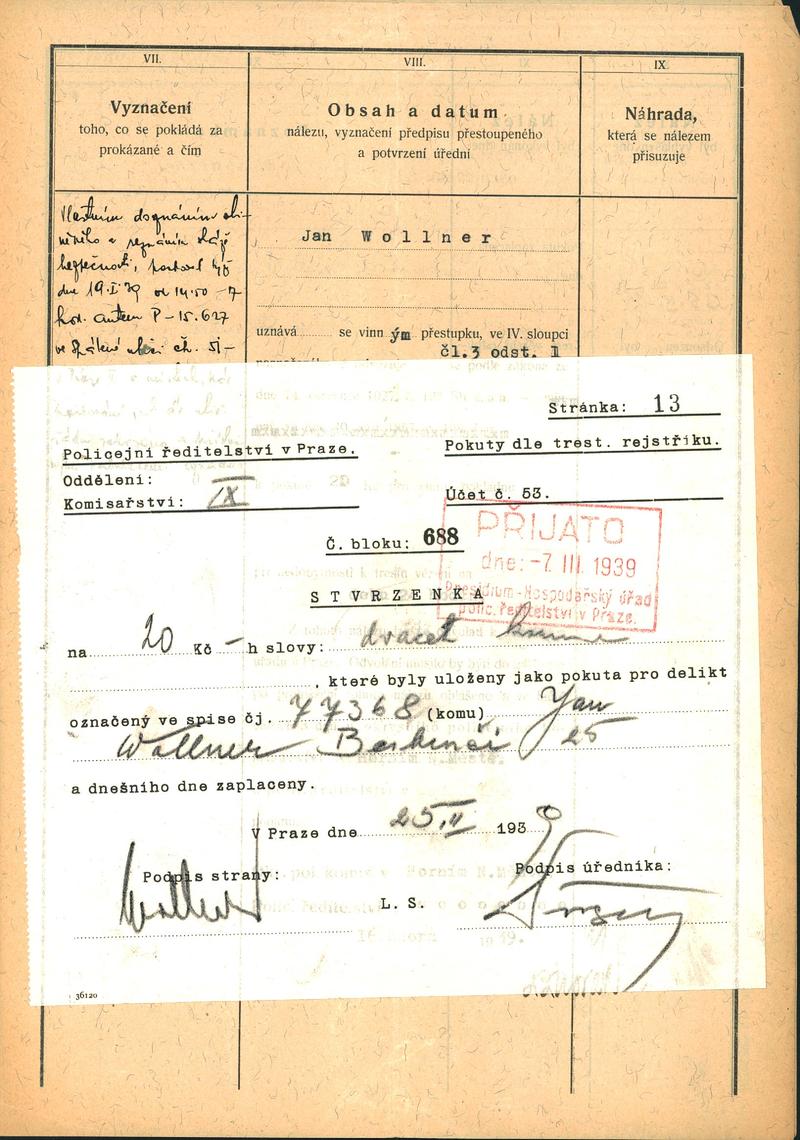 VII.
VIII.
IX.
Vyznačení
toho, co se pokládá za
prokázané a čím
Obsah a datum
nálezu, vyznačení předpisu přestoupeného
a potvrzení úřední
Náhrada,
která se nálezem
přisuzuje
Vlastním doznáním obvi-
něného a seznáním stráže
bezpečnosti, že
dne 19.I.39 od 14.50 - 17
hod. autem P - 15.627
ve ulici čh. 51-
Jan Wollner
uznává se vinným přestupku, ve IV. sloupci
čl.3 odst. 1
Stránka: 13
Policejní ředitelství v Praze.
Pokuty dle trest. rejstříku.
Oddělení:
Komisařství: IX
Účet č. 53.
Č. bloku: 688
PŘIJATO
dne: -7 III 1939
Presidium - Hospodářský úřad
polic. ředitelství v Praze.
STVRZENKA
na 20 Kč - h slovy: dvacet korun
, které byly uloženy jako pokuta pro delikt
označený ve spise čj. 77368 (komu) Jan
Wollner 25
a dnešního dne zaplaceny.
V Praze dne 25.II 1939
Podpis strany:
Podpis úředníka:
L. S.
Wollner
36120